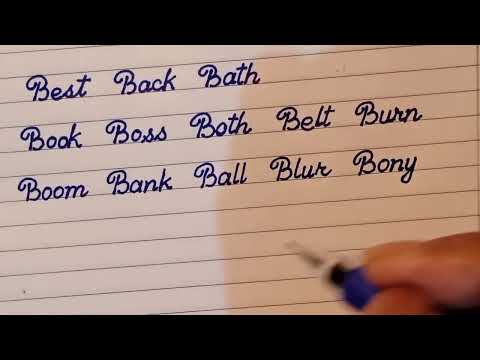 Best Back Bath
Book Boss Both Belt Burn
Boom Bank Ball Blur Bony